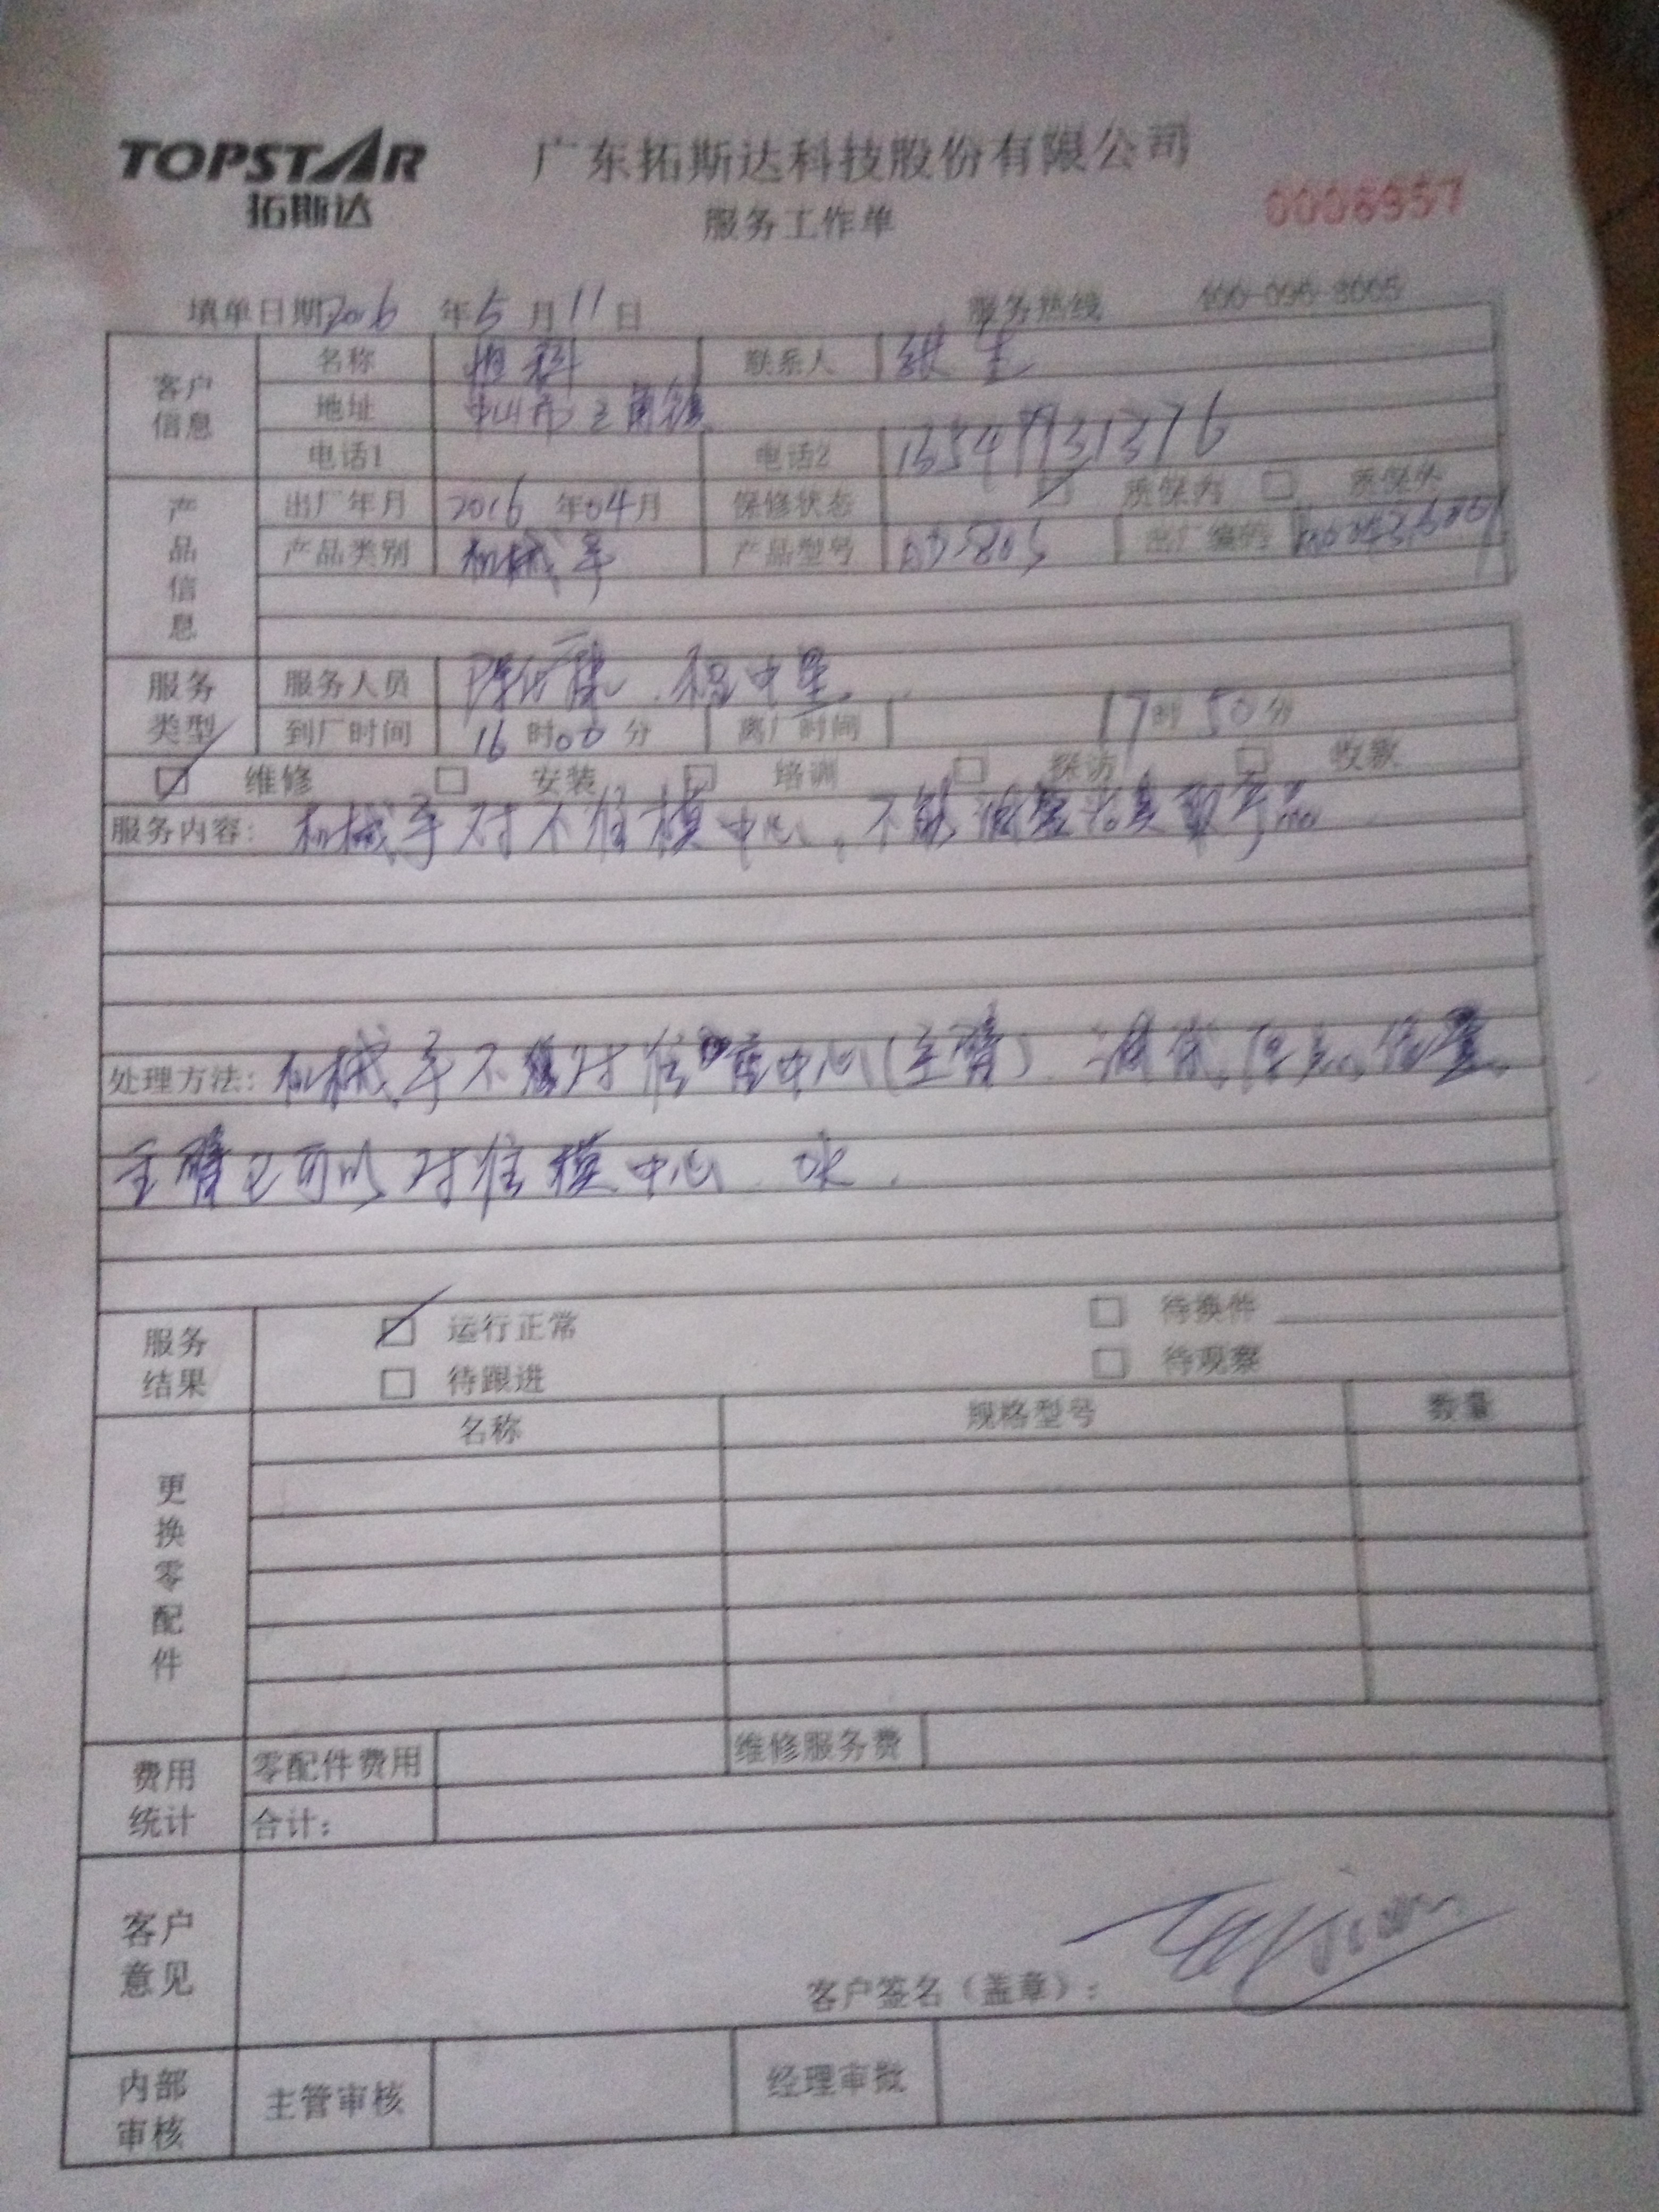 TOPSTAR
拓斯达
广东拓斯达科技股份有限公司
服务工作单
0006957
填单日期 2016 年 5 月 11 日 服务热线 400-096-8005
客户信息
名称 恒科 联系人 生
地址 中山市三角镇
电话1 电话2
产品信息
出厂年月 2016 年 04 月 保修状态 质保内 质保外
产品类别 机械手 产品型号 出厂编码
服务类型
服务人员 程中星
到厂时间 16 时 00 分 离厂时间 17 时 50 分
维修 安装 培训 探访 收款
服务内容: 机械手对不准模中心,不能治具取产品
处理方法: 机械手不能对准中心(主臂) 调试原点位置,
主臂已可以对准模中心 OK.
服务结果
运行正常 待换件
待跟进 待观察
更换零配件
名称 规格型号 数量
费用统计
零配件费用 维修服务费
合计:
客户意见
客户签名(盖章):
内部审核
主管审核 经理审批